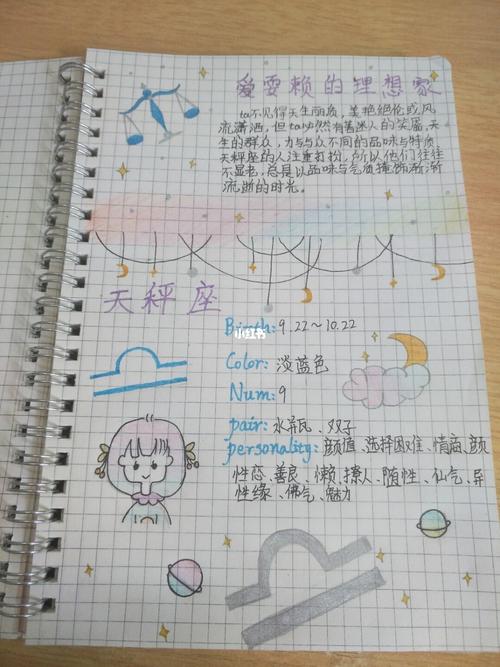 爱耍赖的理想家
ta不见得天生丽质,美艳绝伦或风
流潇洒,但ta必然有着迷人的笑靥,天
生的群众,力与与众不同的品味与特质
天秤座的人注重打扮,所以他们往往
不显老,总是以品味与气质掩饰渐渐
流逝的时光。
天秤座
Birth:9.22~10.22
小红书
Color:淡蓝色
Num:9
pair:水瓶、双子
personality:颜值、选择困难、情商、颜
性恋、善良、懒、撩人、随性、仙气、异
性缘、佛气、魅力